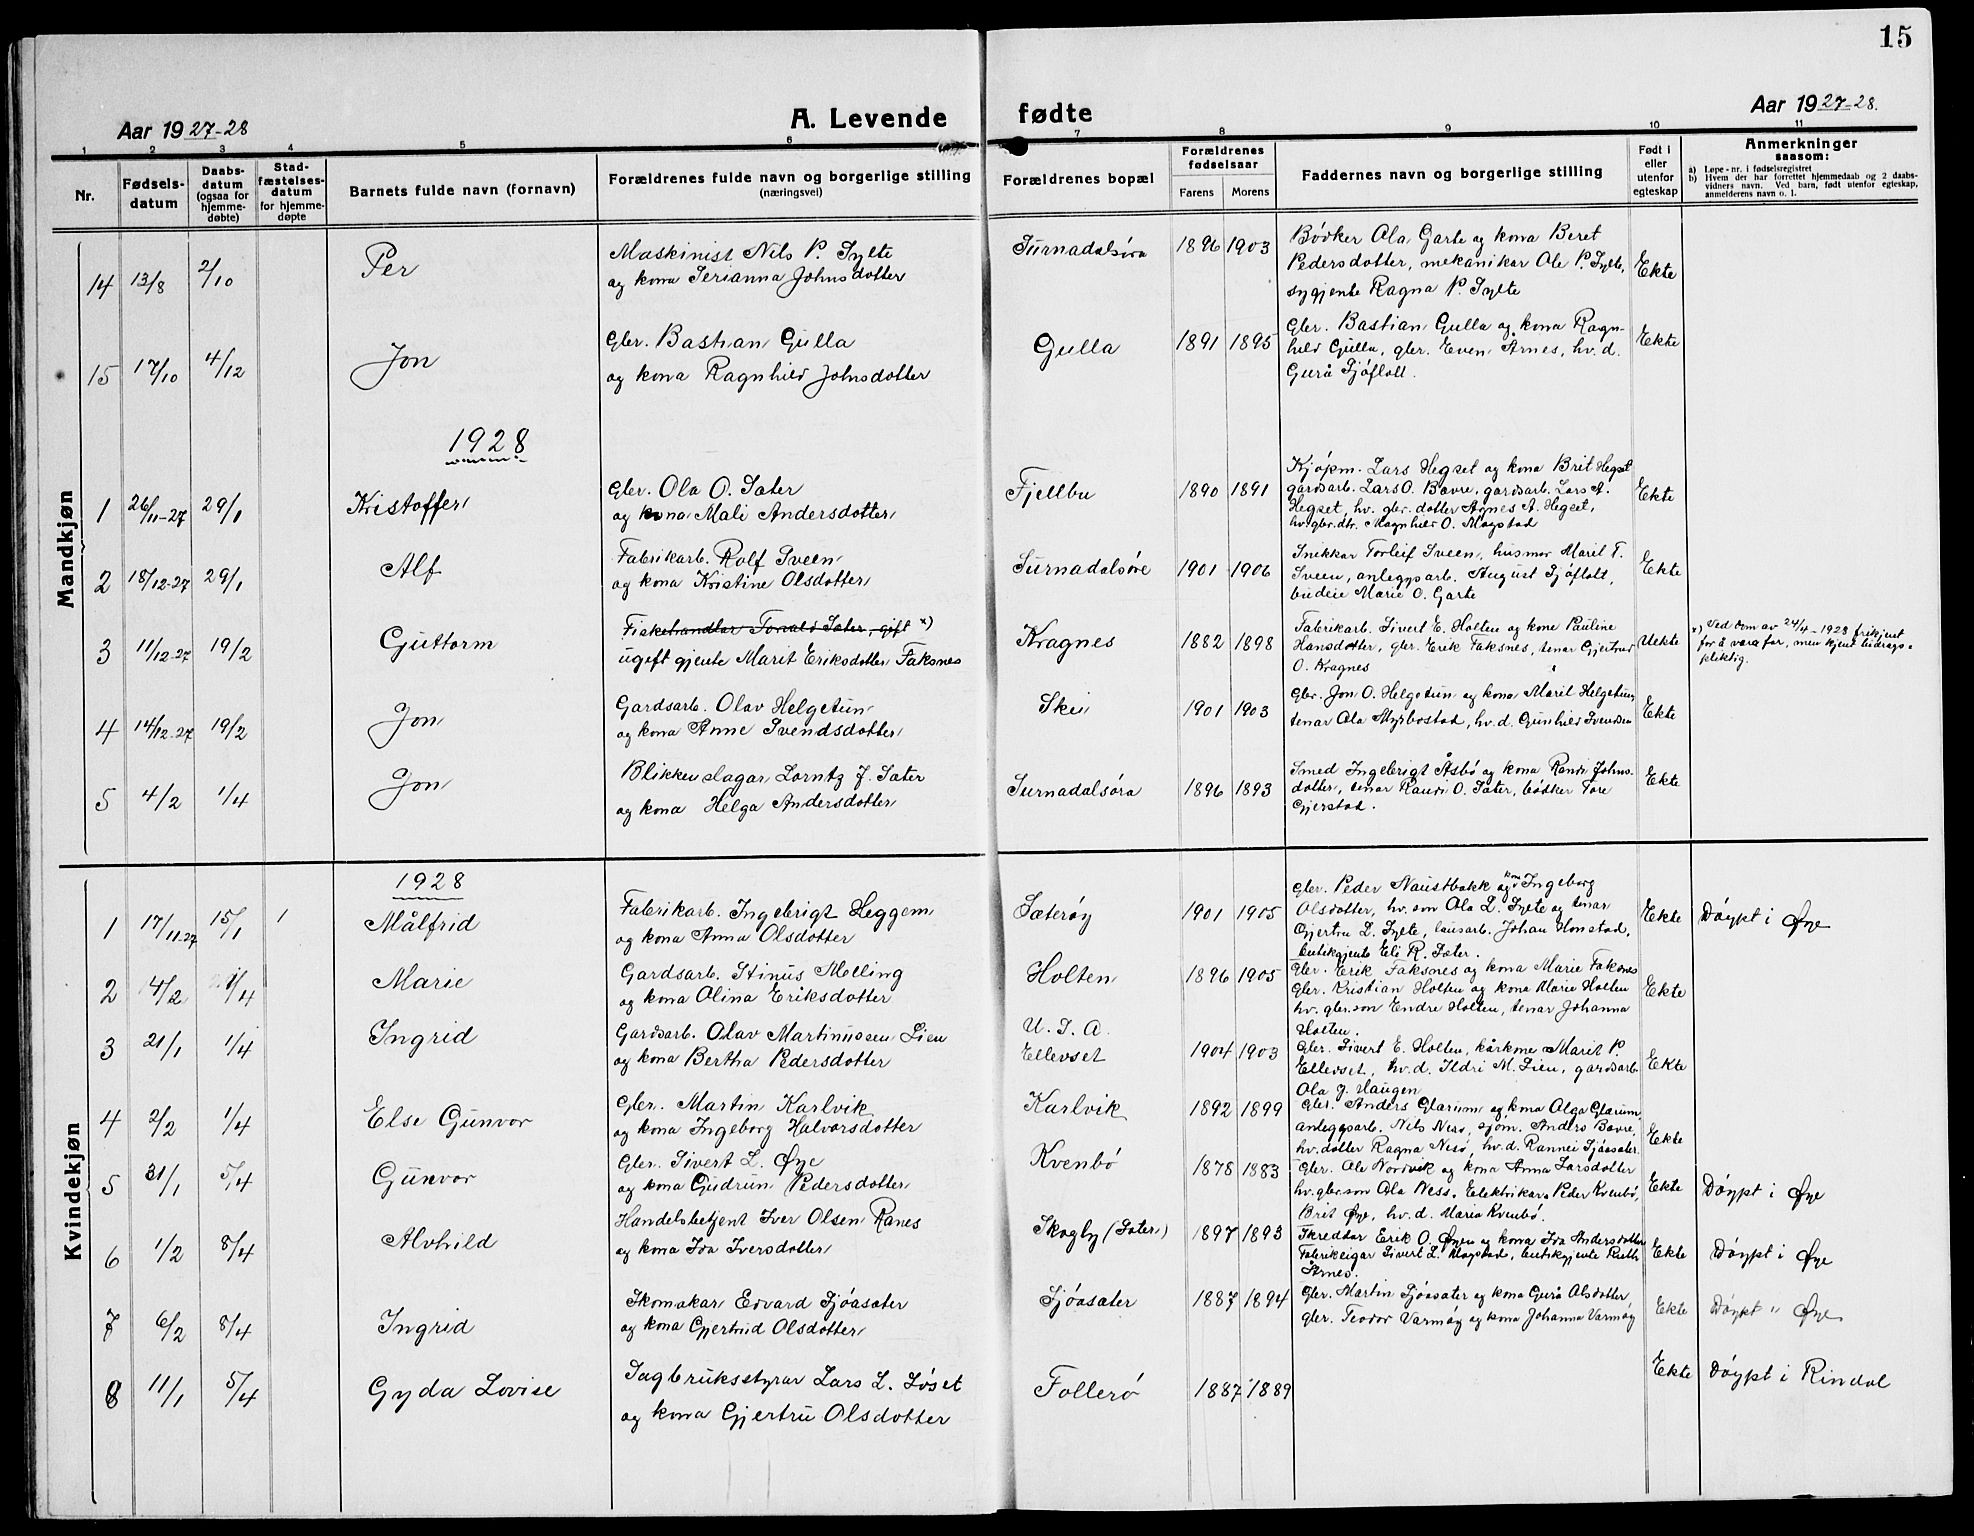 15
Aar 1927-28
A. Levende
fødte
Aar 1927-28.
1 2 3 4 5 6 7 8 9 10 11
Nr.
Fødsels-
datum
Daabs-
datum
(ogsaa for
hjemme-
døbte)
Stad-
fæstelses-
datum
for hjemme-
døpte
Barnets fulde navn (fornavn)
Forældrenes fulde navn og borgerlige stilling
(næringsvei)
Forældrenes bopæl
Forældrenes
fødselsaar
Farens Morens
Faddernes navn og borgerlige stilling
Født i
eller
utenfor
egteskap
Anmerkninger
saasom:
a) Løpe-nr. i fødselsregistret
b) Hvem der har forrettet hjemmedaab og 2 daabs-
vidners navn. Ved barn, født utenfor egteskap,
anmelderens navn o. l.
Mandkjøn
14 13/8 2/10 Per
Maskinist Nils P. Sylte
og kona Serianna Johnsdotter
Surnadalsøra 1896 1903
Bødker Ola Garte og kona Beret
Pedersdotter, mekanikar Ole P. Sylte,
sygjente Ragna P. Sylte
Ekte
15 17/10 4/12 Jon
Gbr. Bastian Gulla
og kona Ragnhild Johnsdotter
Gulla 1891 1895
Gbr. Bastian Gulla og kona Ragn-
hild Gulla, gbr. Even Årnes, hv. d.
Gurå Sjøflot.
Ekte
1928
1 26/11-27 29/1 Kristoffer
Gbr. Ola O. Sæter
og kona Mali Andersdotter
Fjellbu 1890 1891
Kjøpm. Lars Hegset og kona Brit Hegset
gardsarb. Lars O. Bævre, gardsarb. Lars A.
Hegset, hv. gbr. dotter Agnes A. Hegset,
hv. gbr. dtr. Magnhild O. Mogstad
Ekte
2 18/12-27 29/1 Alf
Fabrikarb. Rolf Sveen
og kona Kristine Olsdotter
Surnadalsøre 1901 1906
Snikkar Torleif Sveen, husmor Marit T.
Sveen, anleggsarb. August Sjøflott,
budeie Marie O. Garte
Ekte
3 11/12-27 19/2 Guttorm
Fiskehandlar Torvald Sæter, gift x)
ugift gjente Marit Eriksdotter Faksnes
Kragnes 1882 1898
Fabrikarb. Sivert E. Holten og kone Pauline
Hansdotter, gbr. Erik Faksnes, tenar Gjertrud
O. Kragnes
Uekte
x) Ved dom av 24/4-1928 frikjent
for å vera far, men kjent bidrags-
pliktig.
4 14/12-27 19/2 Jon
Gardsarb. Olav Helgetun
og kona Anne Svendsdotter
Skei 1901 1903
Gbr. Jon O. Helgetun og kona Marit Helgetun,
tenar Ola Myrbostad, hv. d. Gunhild Svendsen
Ekte
5 4/2 1/4 Jon
Blikkenslagar Lorntz J. Sæter
og kona Helga Andersdotter
Surnadalsøra 1896 1893
Smed Ingebrigt Åsbø og kona Randi Johns-
dotter, tenar Randi O. Sæter, bødker Tore
Gjerstad.
Ekte
Kvindekjøn
1928
1 17/11-27 15/1 1 Målfrid
Fabrikarb. Ingebrigt Heggem
og kona Anna Olsdotter
Sæterøy 1901 1905
Gbr. Peder Naustbakk og kona Ingeborg
Olsdotter, hv. son Ola L. Sylte og tenar
Gjertru L. Sylte, lausarb. Johan Honstad,
butikgjente Eli R. Sæter.
Ekte Døypt i Øye
2 14/2 1/4 Marie
Gardsarb. Stinus Melling
og kona Olina Eriksdotter
Holten 1896 1905
Gbr. Erik Faksnes og kona Marie Faksnes
Gbr. Kristian Holten og kona Marie Holten
hv. gbr. son Endre Holten, tenar Johanna
Holten.
Ekte
3 21/1 1/4 Ingrid
Gardsarb. Olav Martinussen Lien
og kona Bertha Pedersdotter
U. S. A.
Ellevset 1904 1903
Gbr. Sivert E. Holten, kårkone Marit P.
Ellevset, hv. d. Ildri M. Lien, gardsarb.
Ola J. Haugen
Ekte
4 2/2 1/4 Else Gunvor
Gbr. Martin Karlvik
og kona Ingeborg Halvorsdotter
Karlvik 1892 1899
Gbr. Anders Glærum og kona Olga Glærum,
anleggsarb. Nils Nesø, sjom. Anders Bævre,
hv. dotter Ragna Nesø, hv. d. Rannei Sjøasæter.
Ekte
5 31/1 5/4 Gunvor
Gbr. Sivert L. Øye
og kona Gudrun Pedersdotter
Kvenbø 1878 1883
Gbr. Ole Nordvik og kona Anna Larsdotter
hv. gbr. son Ola Ness, Elektrikar Peder Kvenbø,
Brit Øye, hv. d. Maria Kvenbø.
Ekte Døypt i Øye
6 1/2 8/4 Alvhild
Handelsbetjent Iver Olsen Ranes
og kona Ida Iversdotter
Skogly (Sæter) 1897 1893
Skreddar Erik O. Øyen og kona Ida Andersdotter
Fabrikeigar Sivert L. Mogstad, butikgjente Ruth
Årnes.
Ekte Døypt i Øye
7 6/2 8/4 Ingrid
Skomakar Edvard Sjøasæter
og kona Gjertrud Olsdotter
Sjøasæter 1887 1894
Gbr. Martin Sjøasæter og kona Gurå Olsdotter
gbr. Teodor Varmøy og kona Johanna Varmøy
Ekte Døypt " Øye
8 11/1 5/4 Gyda Lovise
Sagbruksstyrar Lars L. Løset
og kona Gjertru Olsdotter
Follerø 1887 1889
Ekte Døypt i Rindal